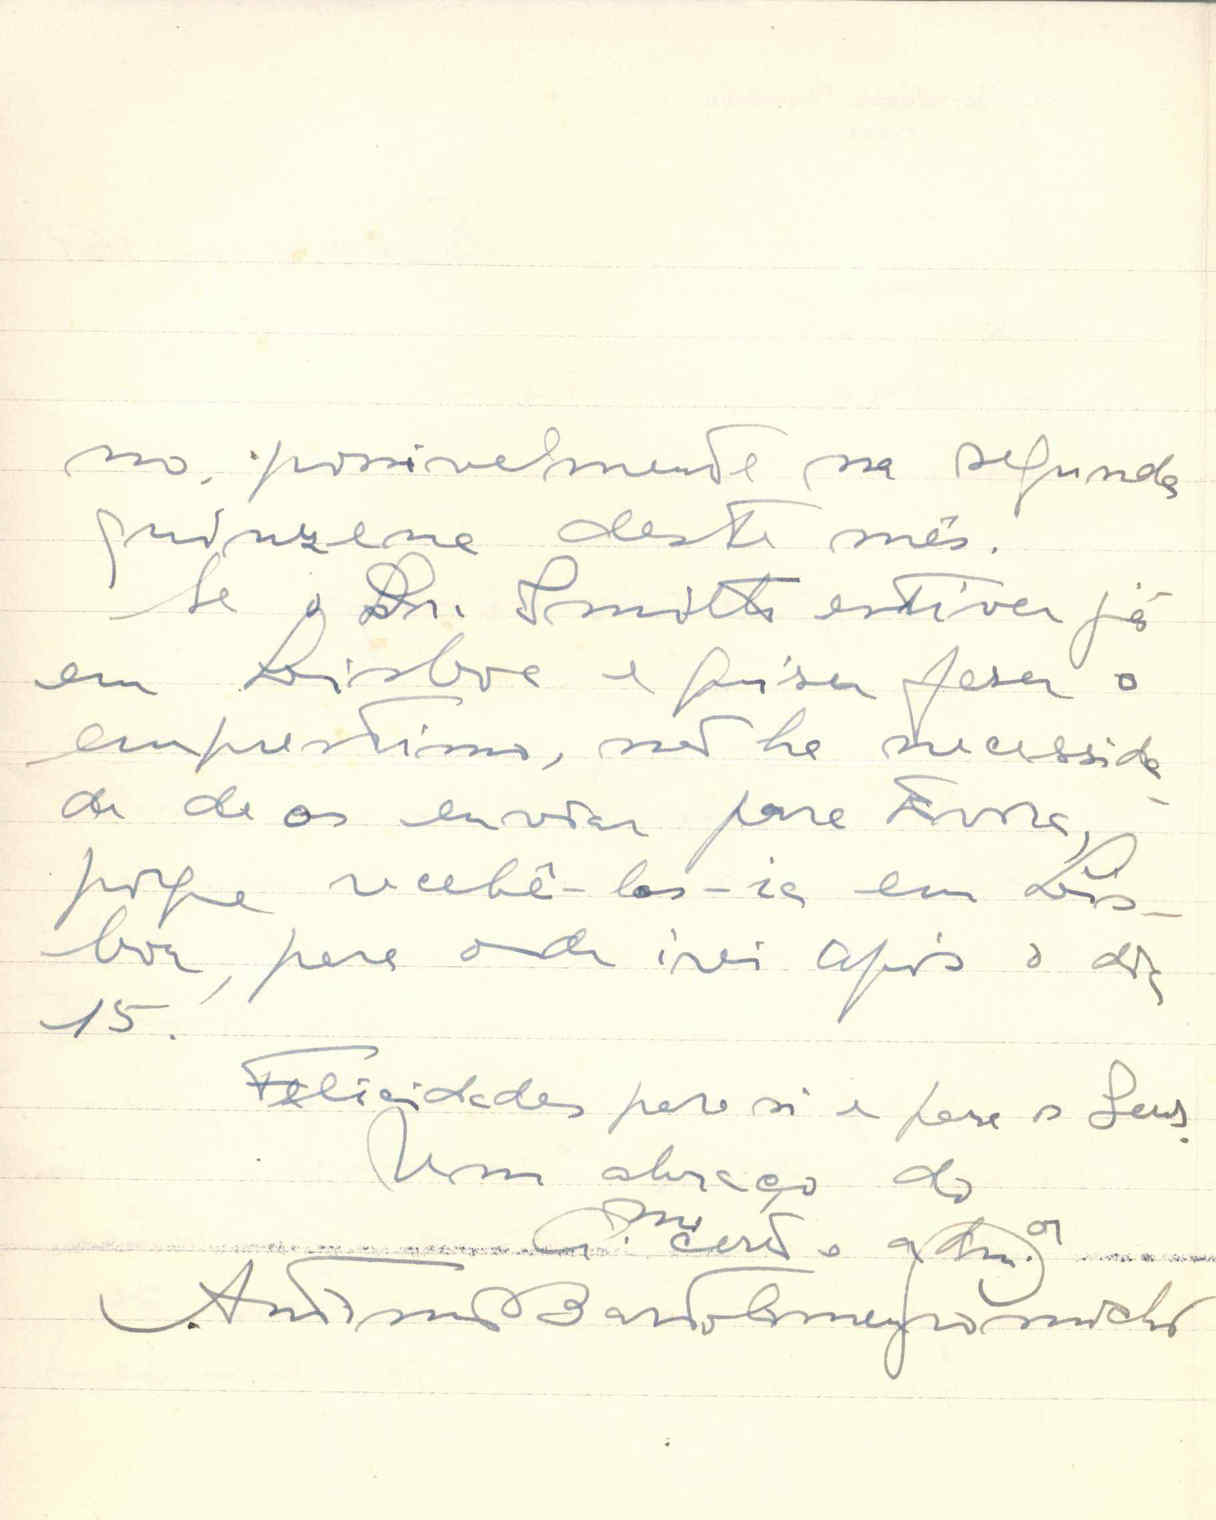 no, possivelmente na segunda
quinzena deste mês.
Se o Dr. Smith estiver já
em Lisboa e quiser fazer o
emprestimo, não ha necessida-
de de os enviar para Evora,
porque recebê-los-ia em Lis-
boa, para onde irei após o dia
15.
Felicidades para si e para os Seus.
Um abraço do
A.mo certo e adm.or
Antonio Bartolomeu Gromicho